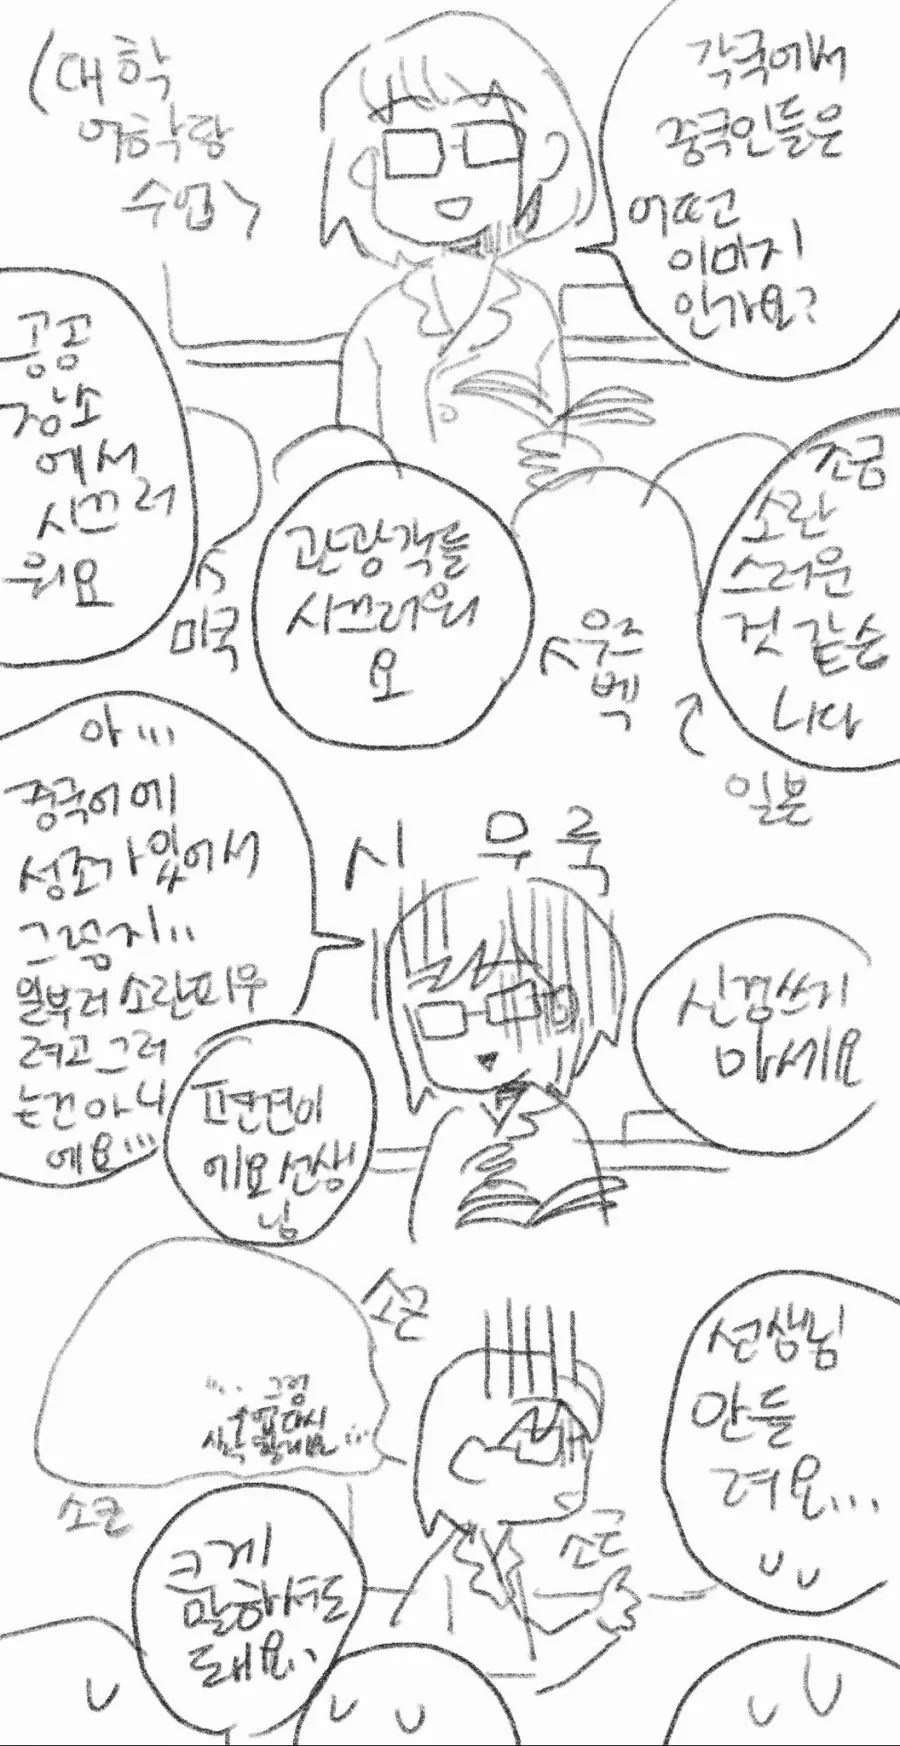 (대학
어학당
수업)
각국에서
중국인들은
어떤
이미지
인가요?
공공
장소
에서
시끄러
워요
미국
관광객들
시끄러워
요
우즈
벡
조금
소란
스러운
것 같슴
니다
일본
아...
중국어에
성조가 있어서
그런지..
일부러 소란피우
려고 그러
는건 아니
에요...
시 무룩
신경쓰지
마세요
편견이
에요 선생
님
소근
... 그럼
수업 다시
시작 할게요...
소근
소근
선생님
안들
려요...
크게
말하셔도
돼요..